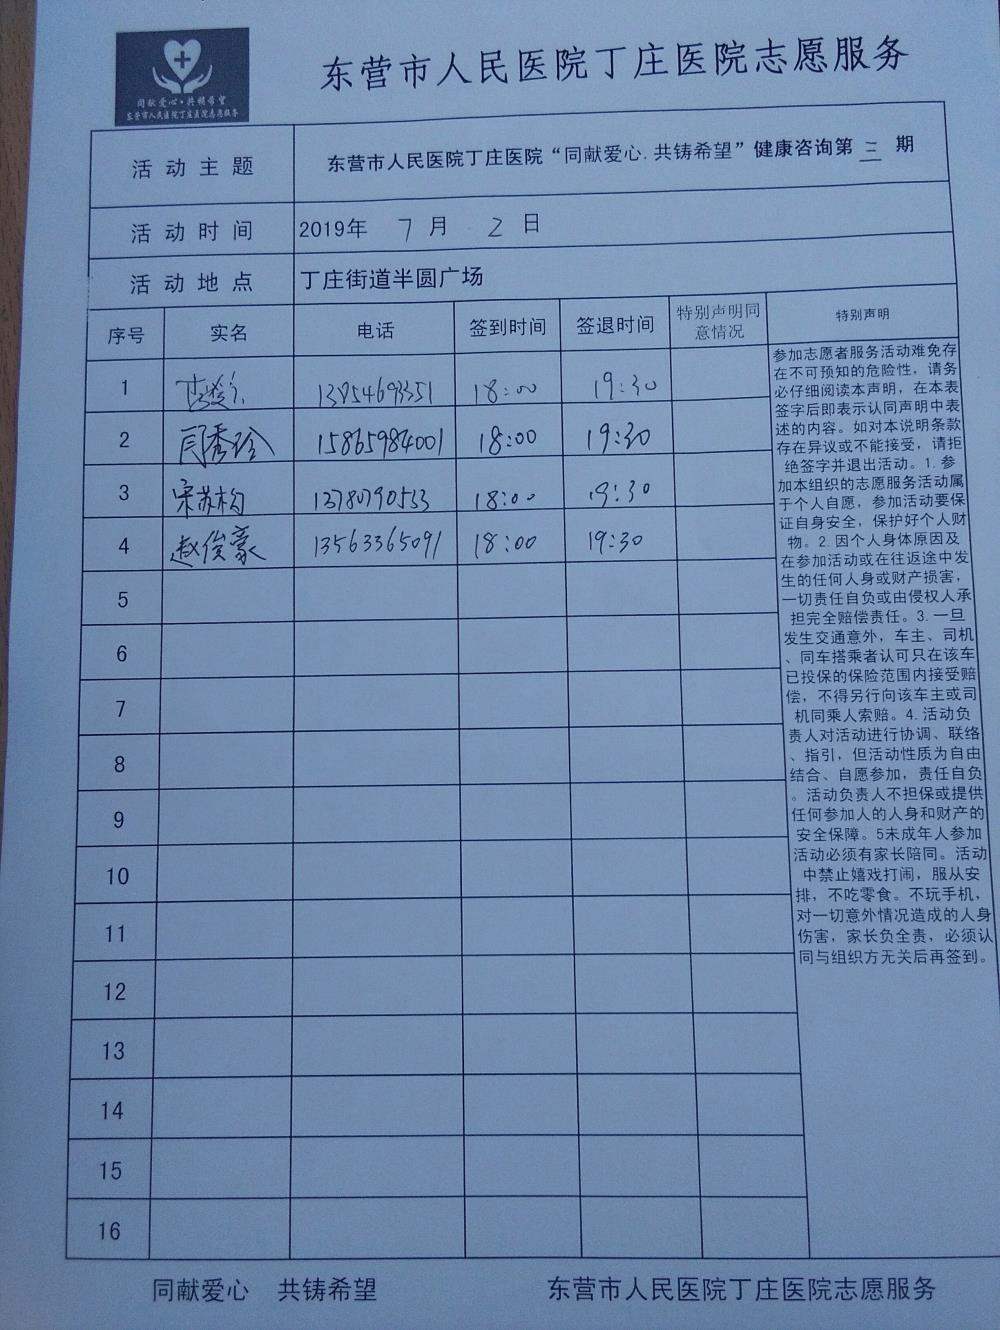 同献爱心·共铸希望
东营市人民医院丁庄医院志愿服务
东营市人民医院丁庄医院志愿服务
活动主题 东营市人民医院丁庄医院“同献爱心.共铸希望”健康咨询第三期
活动时间 2019年 7月 2日
活动地点 丁庄街道半圆广场
序号 实名 电话 签到时间 签退时间 特别声明同意情况 特别声明
1 13854693351 18:00 19:30
2 闫秀珍 15865984001 18:00 19:30
3 宋苏 13780790533 18:00 19:30
4 赵俊豪 13563365091 18:00 19:30
5
6
7
8
9
10
11
12
13
14
15
16
参加志愿者服务活动难免存
在不可预知的危险性，请务
必仔细阅读本声明，在本表
签字后即表示认同声明中表
述的内容。如对本说明条款
存在异议或不能接受，请拒
绝签字并退出活动。1.参
加本组织的志愿服务活动属
于个人自愿，参加活动要保
证自身安全，保护好个人财
物。2.因个人身体原因及
在参加活动或在往返途中发
生的任何人身或财产损害，
一切责任自负或由侵权人承
担完全赔偿责任。3.一旦
发生交通意外，车主、司机
、同车搭乘者认可只在该车
已投保的保险范围内接受赔
偿，不得另行向该车主或司
机同乘人索赔。4.活动负
责人对活动进行协调、联络
、指引，但活动性质为自由
结合、自愿参加，责任自负
。活动负责人不担保或提供
任何参加人的人身和财产的
安全保障。5未成年人参加
活动必须有家长陪同。活动
中禁止嬉戏打闹，服从安
排，不吃零食。不玩手机，
对一切意外情况造成的人身
伤害，家长负全责，必须认
同与组织方无关后再签到。
同献爱心 共铸希望 东营市人民医院丁庄医院志愿服务